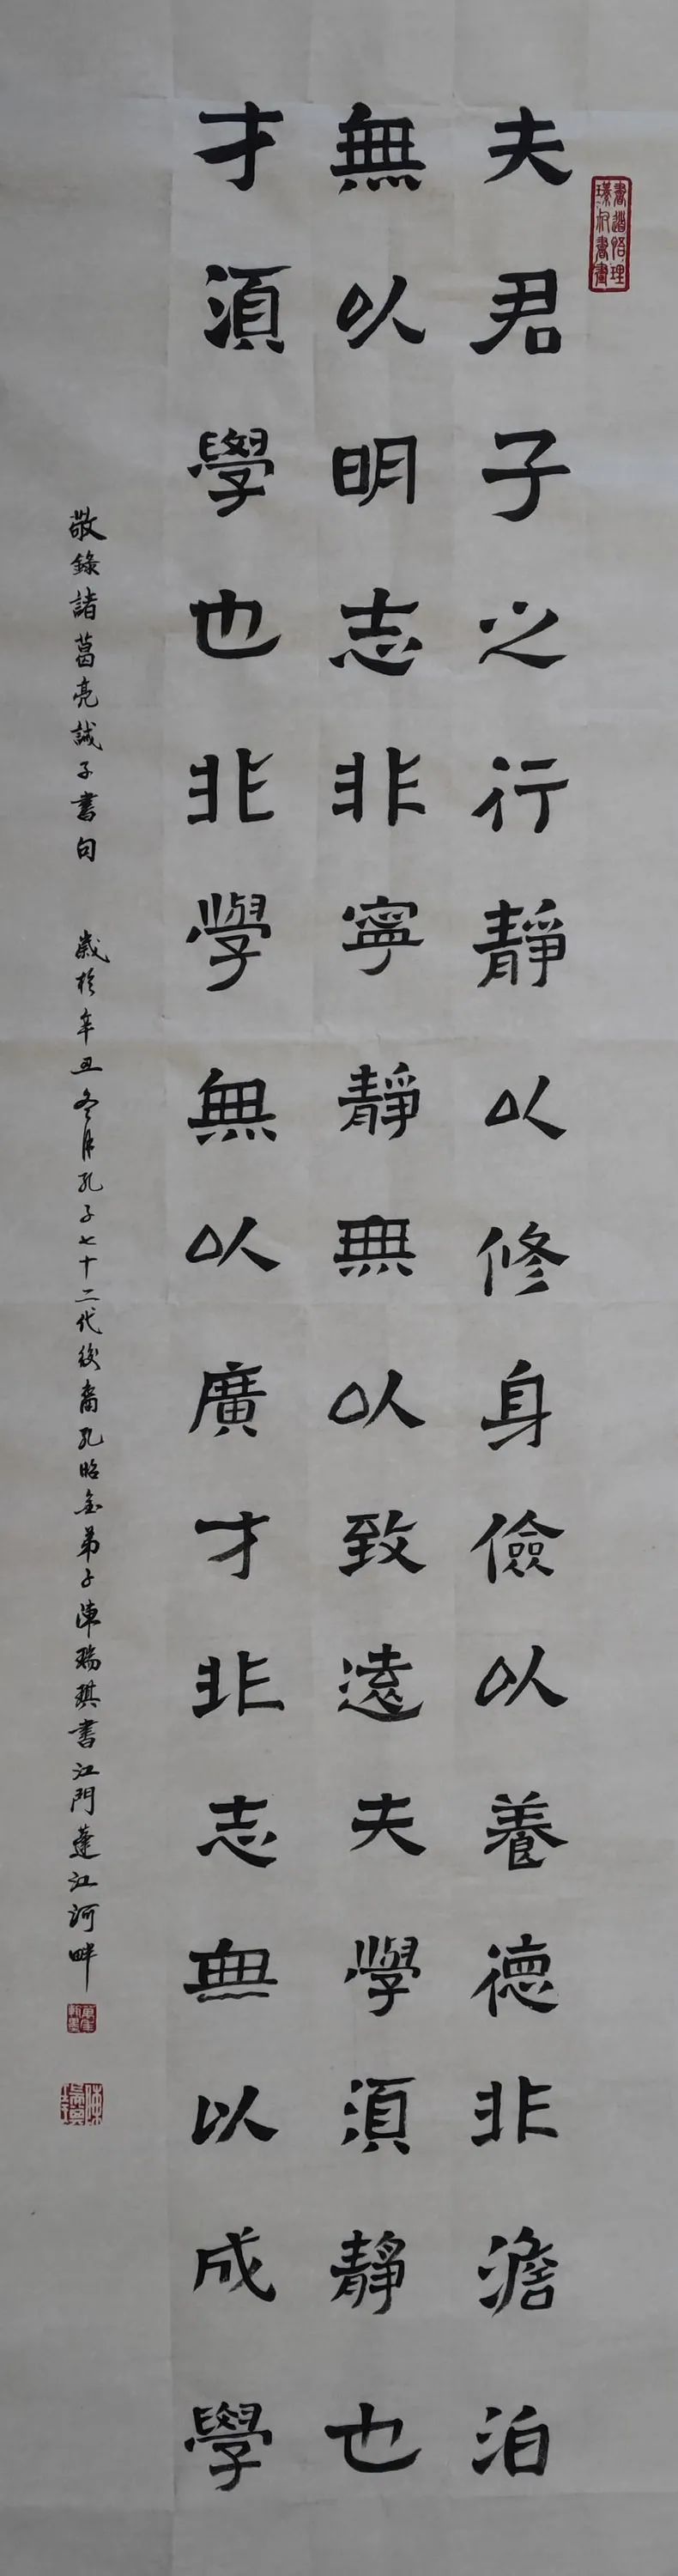 夫君子之行靜以修身儉以養德非澹泊
無以明志非寧靜無以致遠夫學須靜也
才須學也非學無以廣才非志無以成學
敬錄諸葛亮誡子書句 歲於辛丑冬月孔子七十二代後裔孔昭金弟子陳瑞琪書江門蓬江河畔